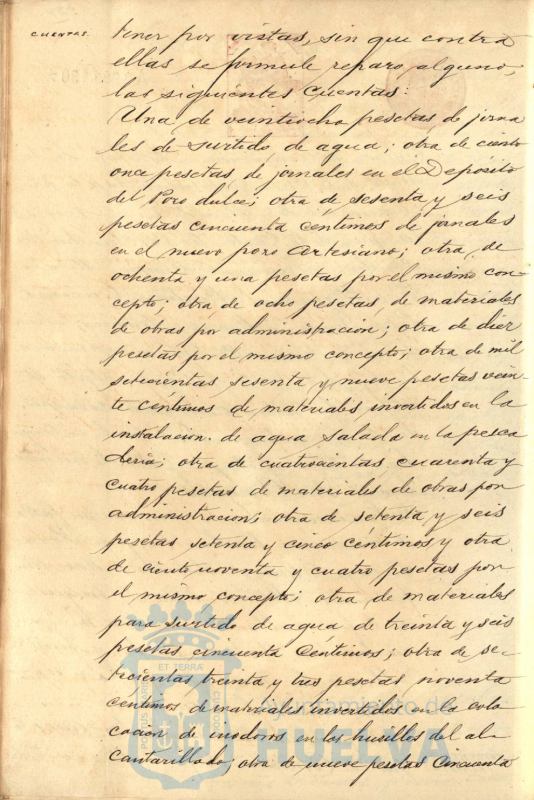 CUENTAS.
tener por vistas, sin que contra
ellas se formule reparo alguno,
las siguientes Cuentas:
Una de veintiocho pesetas de jorna
les de surtido de agua; otra de ciento
once pesetas de jornales en el Deposito
del Pozo dulce; otra de sesenta y seis
pesetas cincuenta centimos de jornales
en el nuevo pozo Artesiano; otra de
ochenta y una pesetas por el mismo con-
cepto; otra de ocho pesetas, de materiales
de obras por administracion; otra de diez
pesetas por el mismo concepto; otra de mil
setecientas sesenta y nueve pesetas vein-
te céntimos de materiales invertidos en la
instalacion de agua salada en la pesca
deria; otra de cuatrocientas cuarenta y
cuatro pesetas de materiales de obras por
administracion; otra de setenta y seis
pesetas setenta y cinco céntimos y otra
de ciento noventa y cuatro pesetas por
el mismo concepto; otra de materiales
para surtido de agua de treinta y seis
pesetas cincuenta céntimos; otra de se-
tecientas treinta y tres pesetas noventa
céntimos de materiales invertidos en la colo
cacion de inodoros en los husillos del al-
cantarillado; otra de nueve pesetas cincuenta
ET TERRÆ
Ayuntamiento de
HUELVA